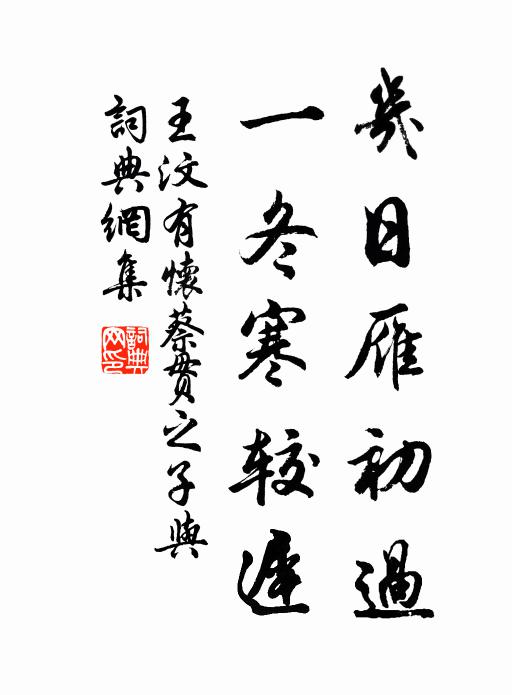 幾日雁初過
一冬寒較遲
王汶有懷蔡貫之子與
詞典網集
詞典网印